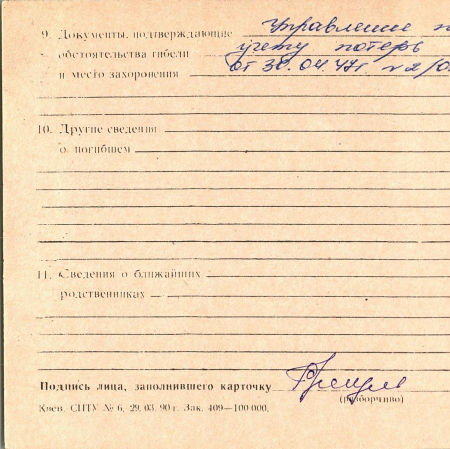 9. Документы, подтверждающие Управление
обстоятельства гибели учету потерь
и место захоронения от 30.04.47г.
10. Другие сведения
о погибшем
11. Сведения о ближайших
родственниках
Подпись лица, заполнившего карточку
(разборчиво)
Киев. СПТУ № 6, 29. 03. 90 г. Зак. 409—100.000.